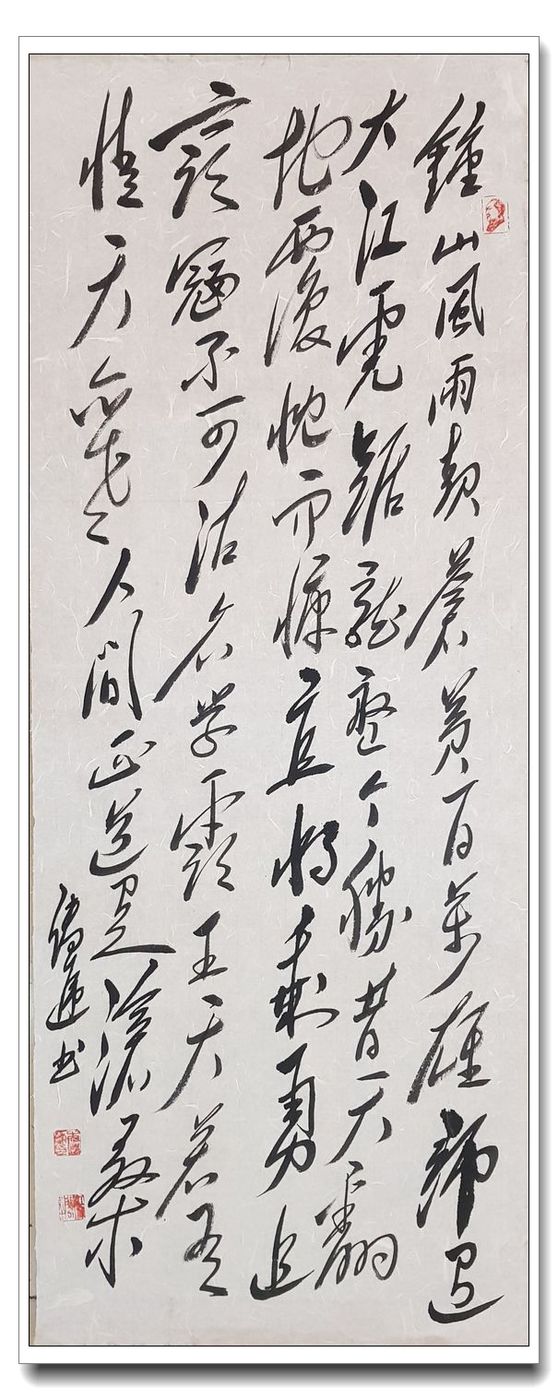 鐘山風雨起蒼黃百萬雄師過
大江虎踞龍盤今勝昔天翻
地覆慨而慷宜將剩勇追
窮寇不可沽名學霸王天若有
情天亦老人間正道是滄桑
書